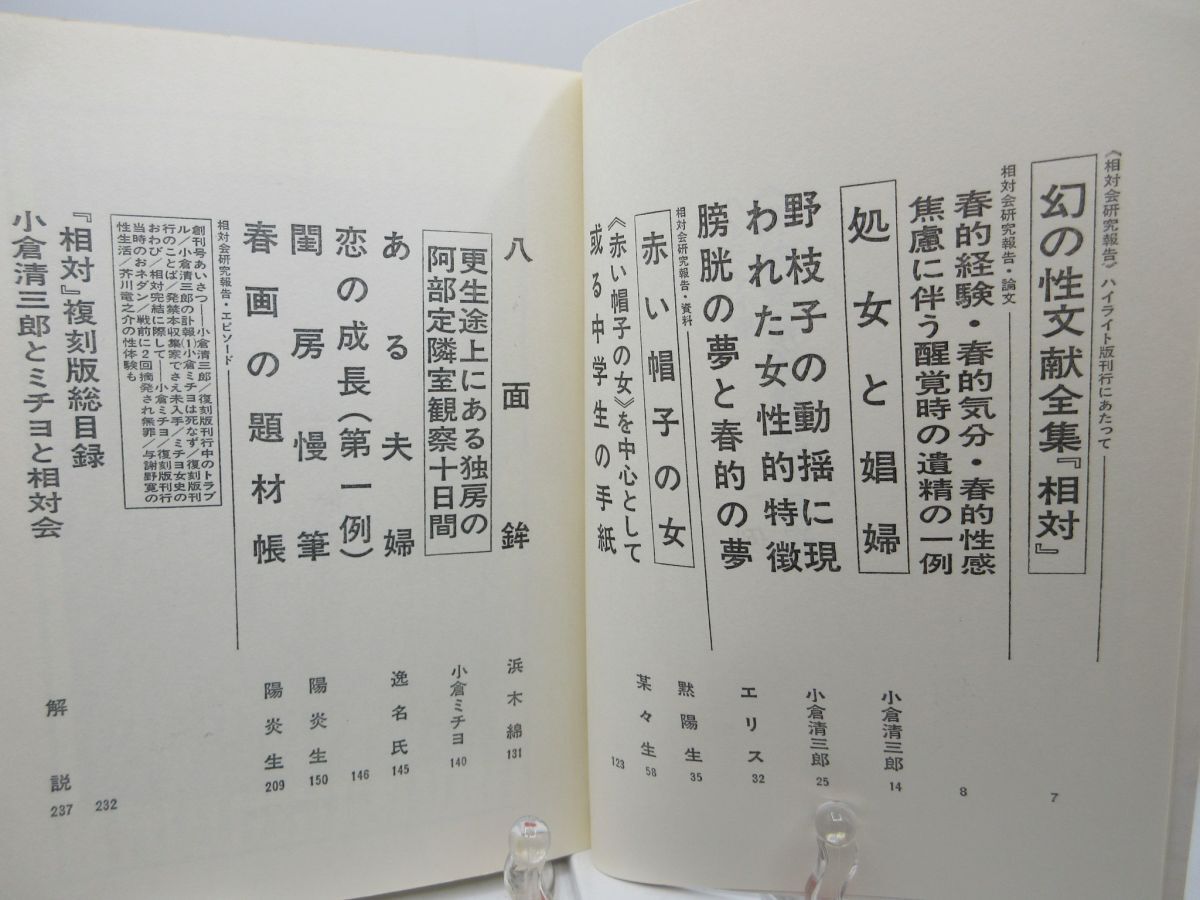 《相対会研究報告》ハイライト版刊行にあたって
幻の性文献全集『相対』
7
相対会研究報告・論文
8
春的経験・春的気分・春的性感
焦慮に伴う醒覚時の遺精の一例
小倉清三郎
14
処女と娼婦
小倉清三郎
25
野枝子の動揺に現
われた女性的特徴
エリス
32
膀胱の夢と春的の夢
黙陽生
35
相対会研究報告・資料
赤い帽子の女
某々生
58
《赤い帽子の女》を中心として
或る中学生の手紙
123
八面鉾
浜木綿
131
更生途上にある独房の
阿部定隣室観察十日間
小倉ミチヨ
140
ある夫婦
逸名氏
145
恋の成長(第一例)
146
閨房慢筆
陽炎生
150
春画の題材帳
陽炎生
209
相対会研究報告・エピソード
創刊号あいさつ——小倉清三郎/復刻版刊行中のトラブ
ル/小倉清三郎の訃報(1)小倉ミチヨは死なず/復刻版刊
行のことば/発禁本収集家でさえ未入手/ミチヨ女史の
おわび/相対完結に際して——小倉ミチヨ/復刻版刊行
当時のおネダン/戦前に2回摘発され無罪/与謝野寛の
性生活/芥川竜之介の性体験も
『相対』復刻版総目録
232
小倉清三郎とミチヨと相対会
解説
237